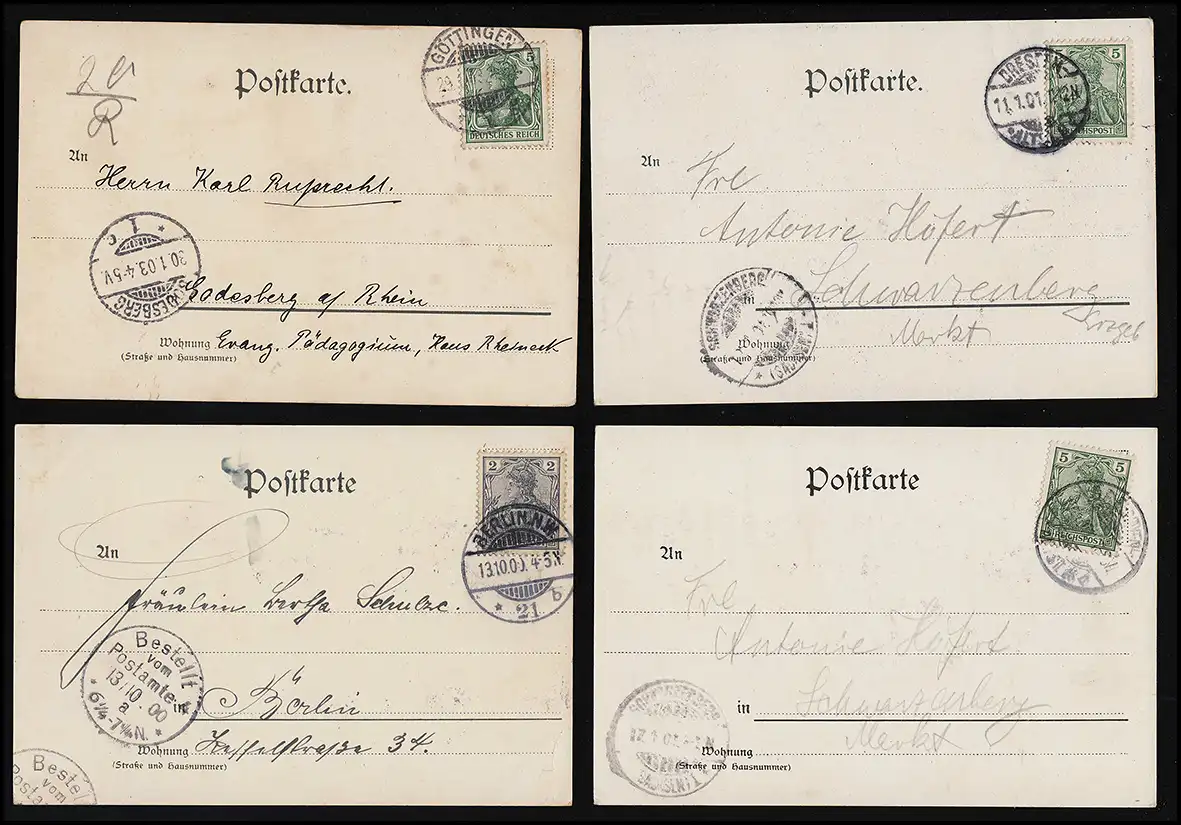 2 M
R
Postkarte.
GÖTTINGEN
5
DEUTSCHES REICH
An
Herrn Karl Ruprecht.
30.1.03.4-5V.
1 c.
Godesberg a/ Rhein
Wohnung Evang. Pädagogium, Haus Rheineck
(Straße und Hausnummer)
Postkarte.
DRESDEN-
11.1.01.
ALTST.
5
REICHSPOST
An
Frl.
Antonie Höfert
in Schwarzenberg
Erzgeb
Markt
Wohnung
(Straße und Hausnummer)
SCHWARZENBERG
Postkarte
2
BERLIN.N.W.
13.10.00. 4-5N.
* 21 b
An
Fräulein Bertha Schulze.
Bestellt
vom
Postamte 4
13/10. 00
a
* 6¼-7¼N. *
in Berlin
Wohnung Kesselstraße 34.
(Straße und Hausnummer)
Bestellt
vom
Postkarte
5
REICHSPOST
An
Frl
Antonie Höfert.
in Schwarzenberg
Markt
Wohnung
(Straße und Hausnummer)